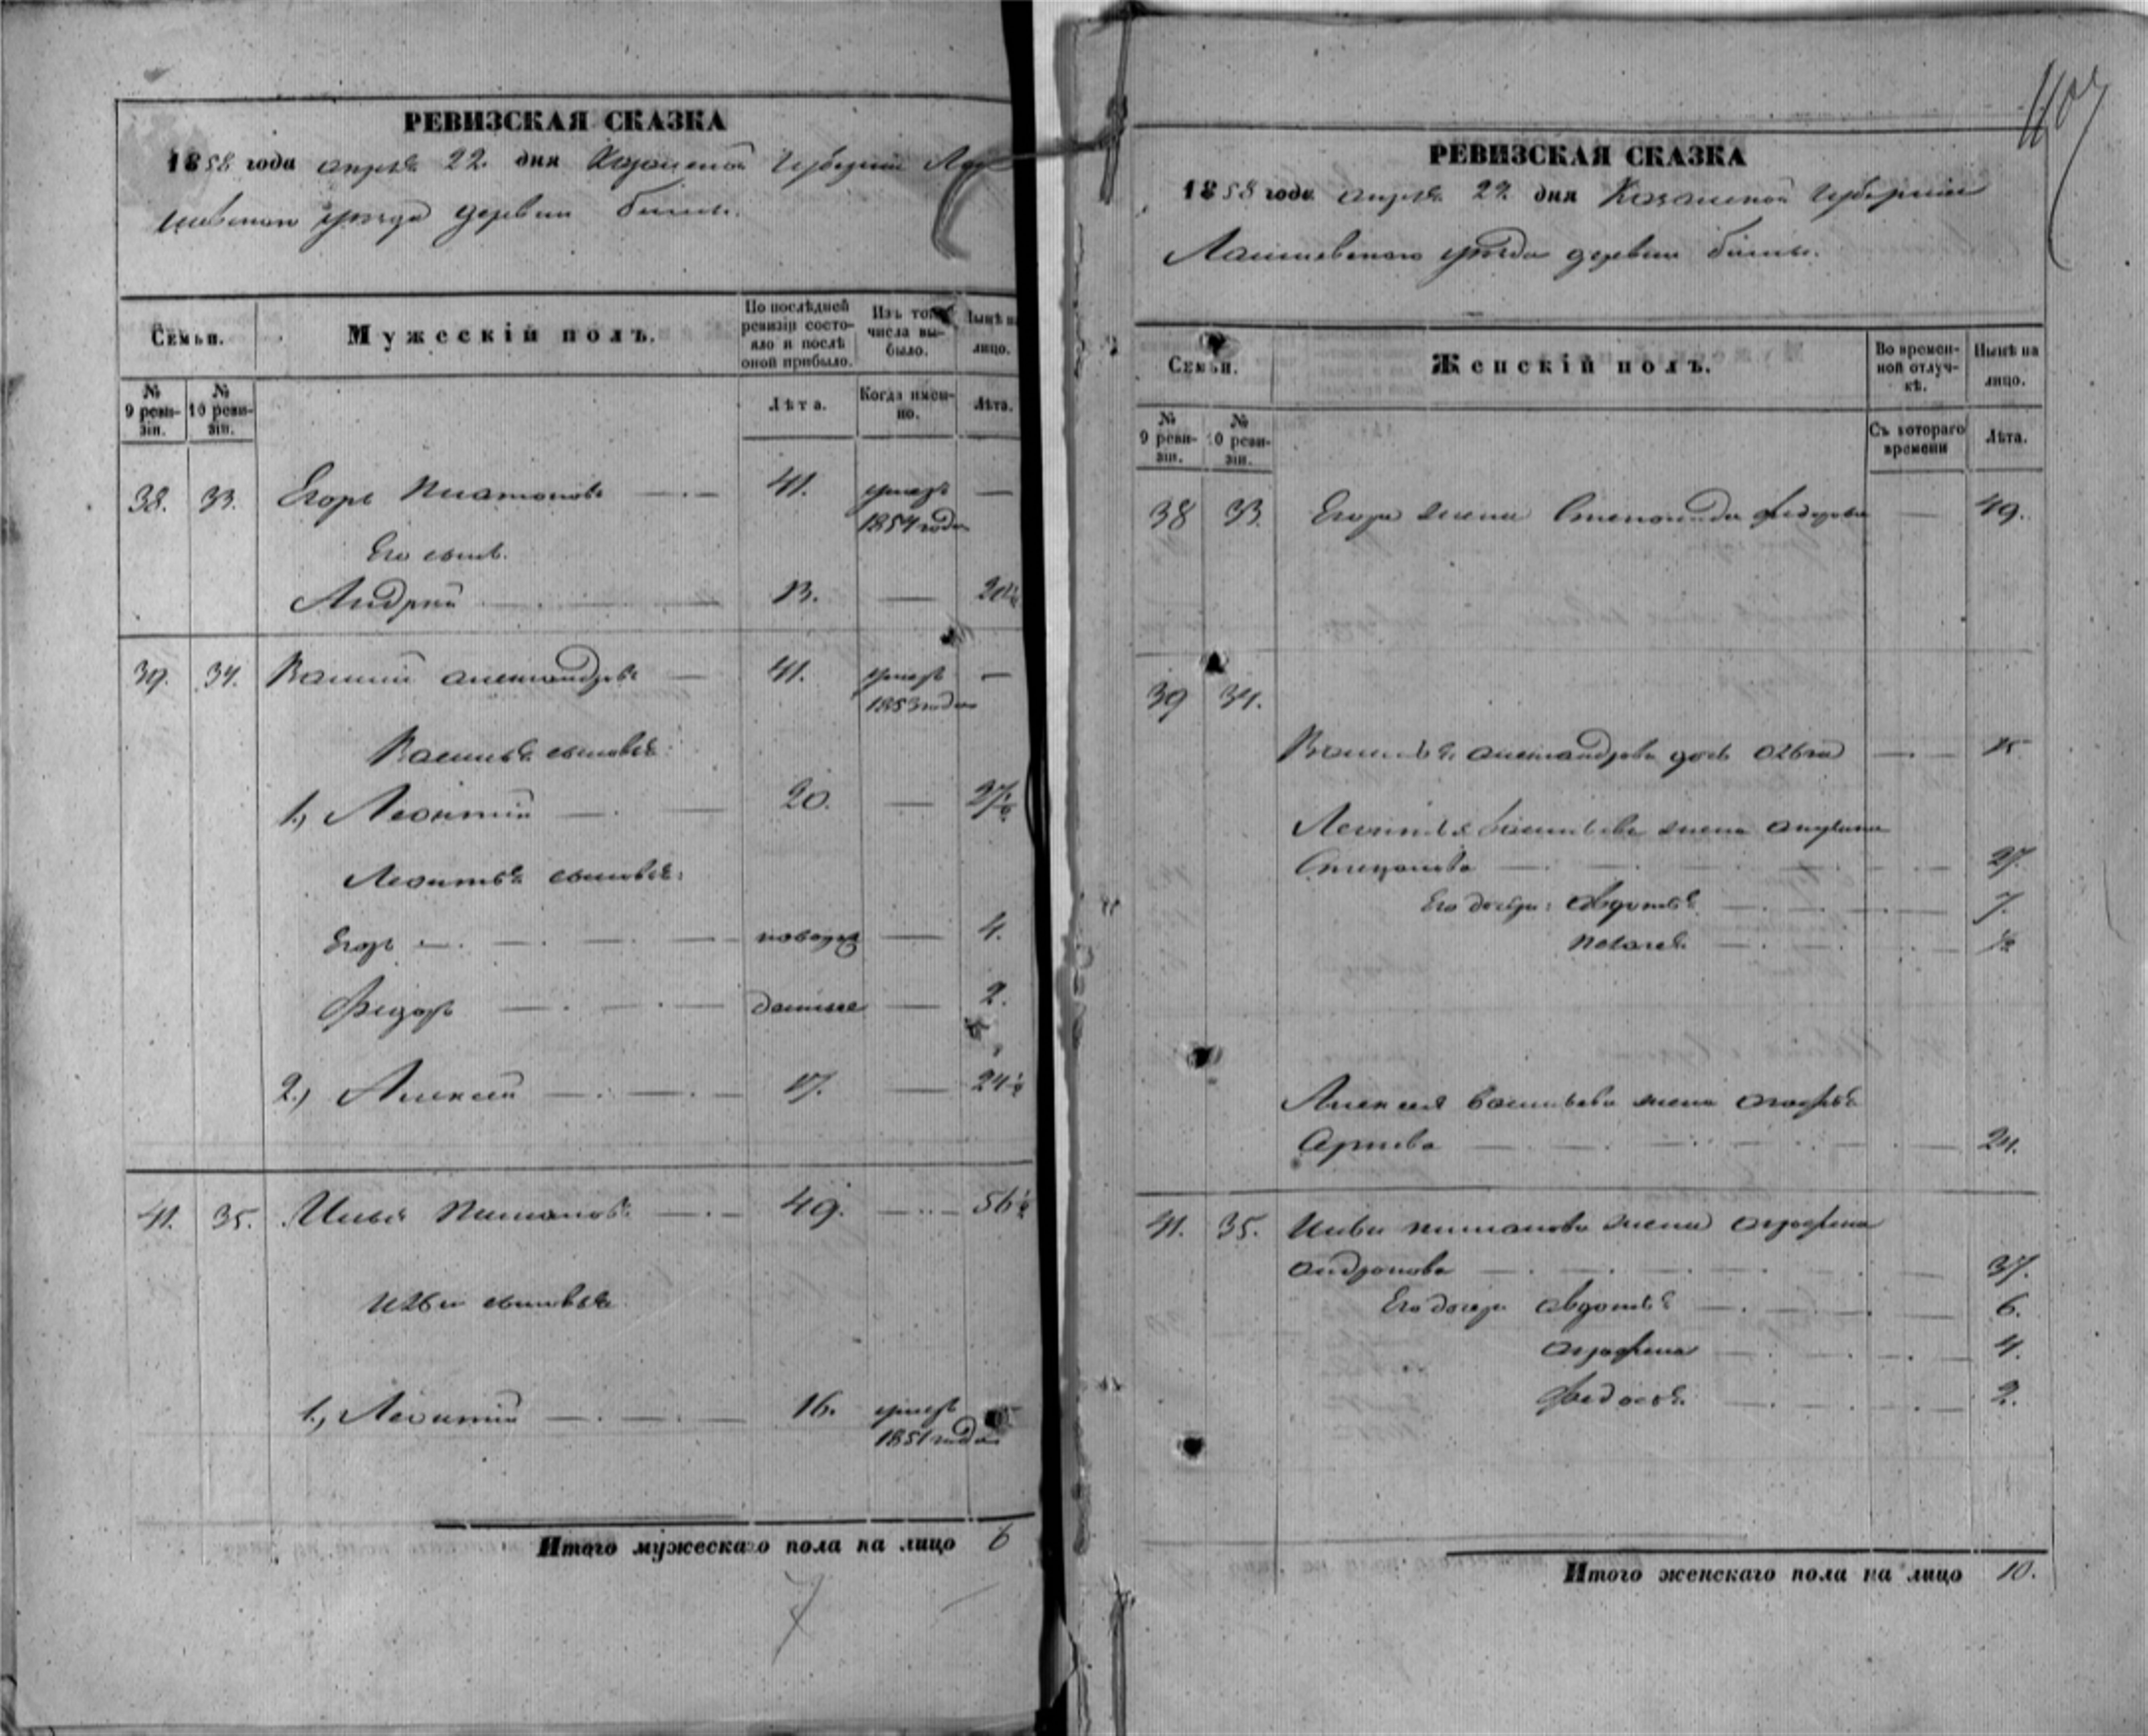 РЕВИЗСКАЯ СКАЗКА
1858 года апреля 22. дня Казанской Губернии Лаи
шевскаго уезда деревни
Семьи.
Мужескій полъ.
По послѣдней ревизіи состояло и послѣ оной прибыло.
Изъ того числа выбыло.
Нынѣ на лицо.
№ 9 ревизіи.
№ 10 ревизіи.
Лѣта.
Когда именно.
Лѣта.
38. 33. Егоръ Платоновъ 41. умеръ —
1854 года
Его сынъ.
Андрей 13. — 20½
39. 34. Василій Александровъ 41. умеръ —
1853 года
Василья сыновья:
1., Леонтій 20. — 27½
Леонтья сыновья:
Егоръ новорож — 4.
Федоръ денные — 2.
2., Алексей 17. — 24½
41. 35. Илья 49. — 56½
Ильи сыновья
1., Леонтій 16. умеръ
1851 года
Итого мужескаго пола на лицо 6
7
РЕВИЗСКАЯ СКАЗКА
1858 года апреля 22 дня Казанской Губернии
Лаишевскаго уезда деревни
Семьи.
Женскій полъ.
Во временной отлучкѣ.
Нынѣ на лицо.
№ 9 ревизіи.
№ 10 ревизіи.
Съ котораго времени
Лѣта.
38 33. Егора жена Степанида Федорова — 49.
39 34.
Василья Александрова дочь Ольга — 15
Леонтья Васильева жена Акулина
Степанова 27.
Его дочери: Авдотья 7.
Пелагея ½
Алексея Васильева жена Агафья
24.
41. 35. Ильи жена Аграфена
Андронова 37.
Его дочери Авдотья 6.
Аграфена 4.
Федосья 2.
Итого женскаго пола на лицо 10.